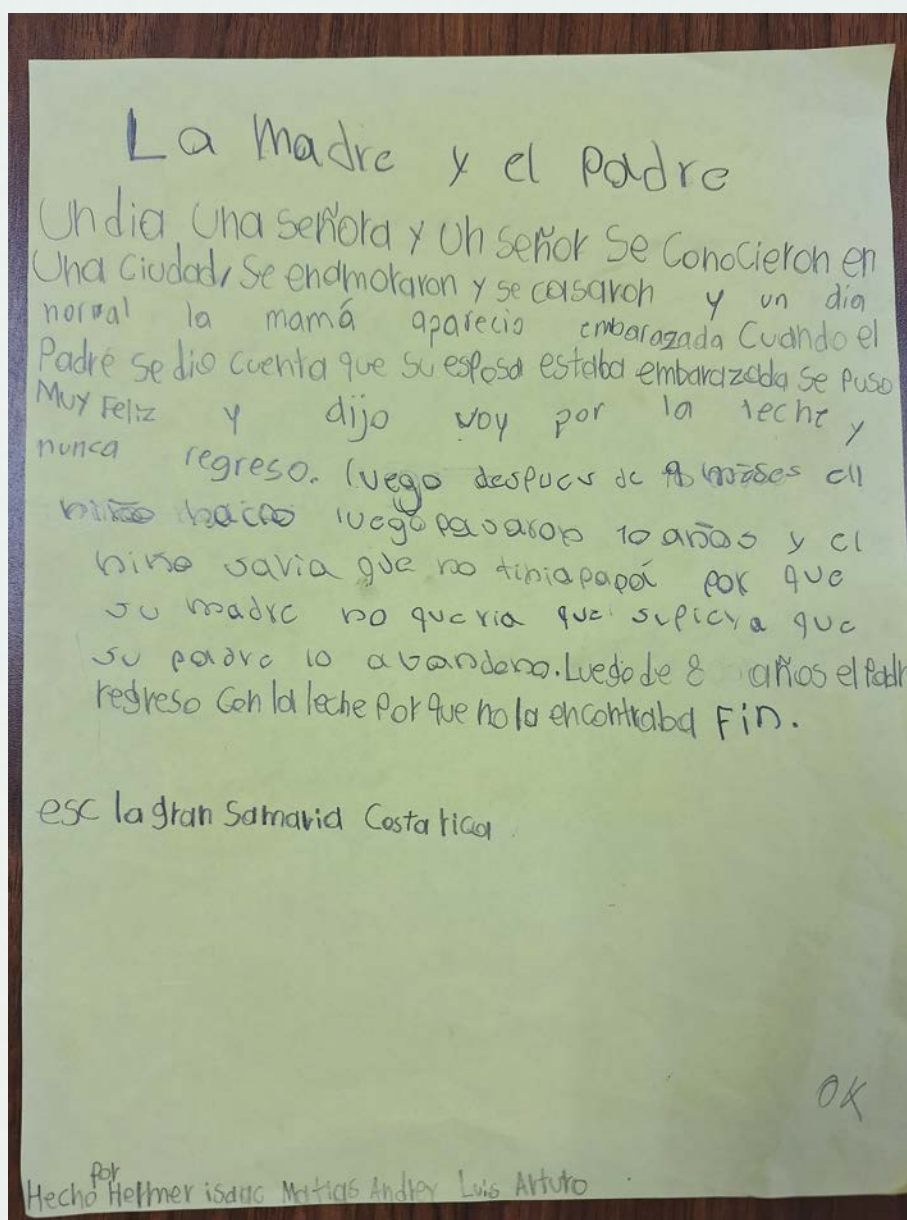 La Madre y el Padre
Un dia Una señora y Un señor Se Conocieron en
Una Ciudad, Se enamoraron y se casaron y un día
normal la mamá aparecio embarazada Cuando el
Padre se dio cuenta que su esposa estaba embarazada se Puso
Muy Feliz y dijo voy por la leche y
nunca regreso. luego despues de meses el
niño nacio luego pasaron 10 años y el
niño savia que no tinia papá por que
su madre no queria que supiera que
su padre lo abandono. Luego de 8 años el Padr
regreso Con la leche Por que no la encontraba Fin.
esc la gran Samaria Costa rica
OK
Por
Hecho Helmer isaac Matias Andrey Luis Arturo